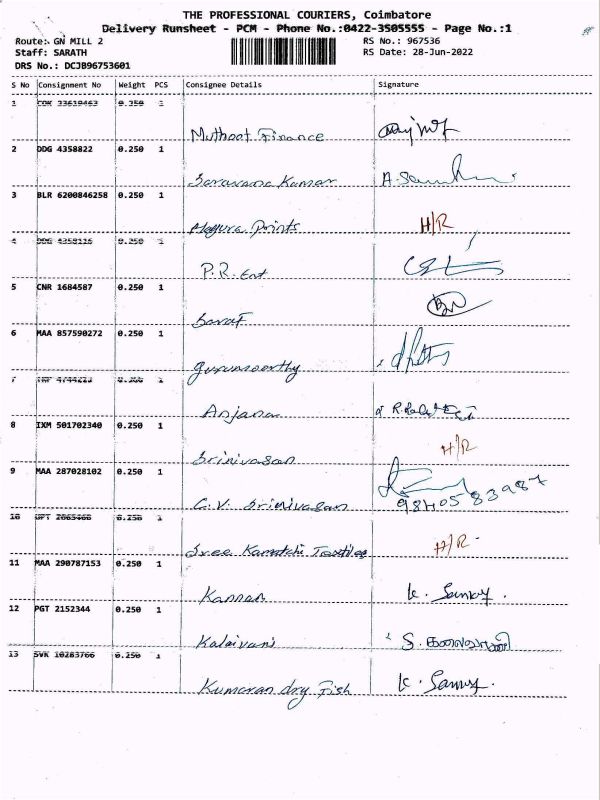 THE PROFESSIONAL COURIERS, Coimbatore
Delivery Runsheet - PCM - Phone No.:0422-3505555 - Page No.:1
Route: GN MILL 2 RS No.: 967536
Staff: SARATH RS Date: 28-Jun-2022
DRS No.: DCJB96753601
S No Consignment No Weight PCS Consignee Details Signature
1 COK 33619463 0.250 1
Muthoot Finance
2 DDG 4358822 0.250 1
Saravana Kumar
3 BLR 6200846258 0.250 1
Alagura Prints H/R
4 DDG 4358116 0.250 1
P.R. Ent
5 CNR 1684587 0.250 1
6 MAA 857590272 0.250 1
gurumoorthy
7 0.250 1
Anjana
8 IXM 501702340 0.250 1
Srinivasan H/R
9 MAA 287028102 0.250 1
G.V. Srinivasan 9840583987
10 0.250 1
Sree Kamatchi Textiles H/R
11 MAA 290787153 0.250 1
Kannan K. Samy.
12 PGT 2152344 0.250 1
Kalaivani S. கலைவாணி
13 SVK 10283766 0.250 1
Kumaran dry Fish K. Samy.